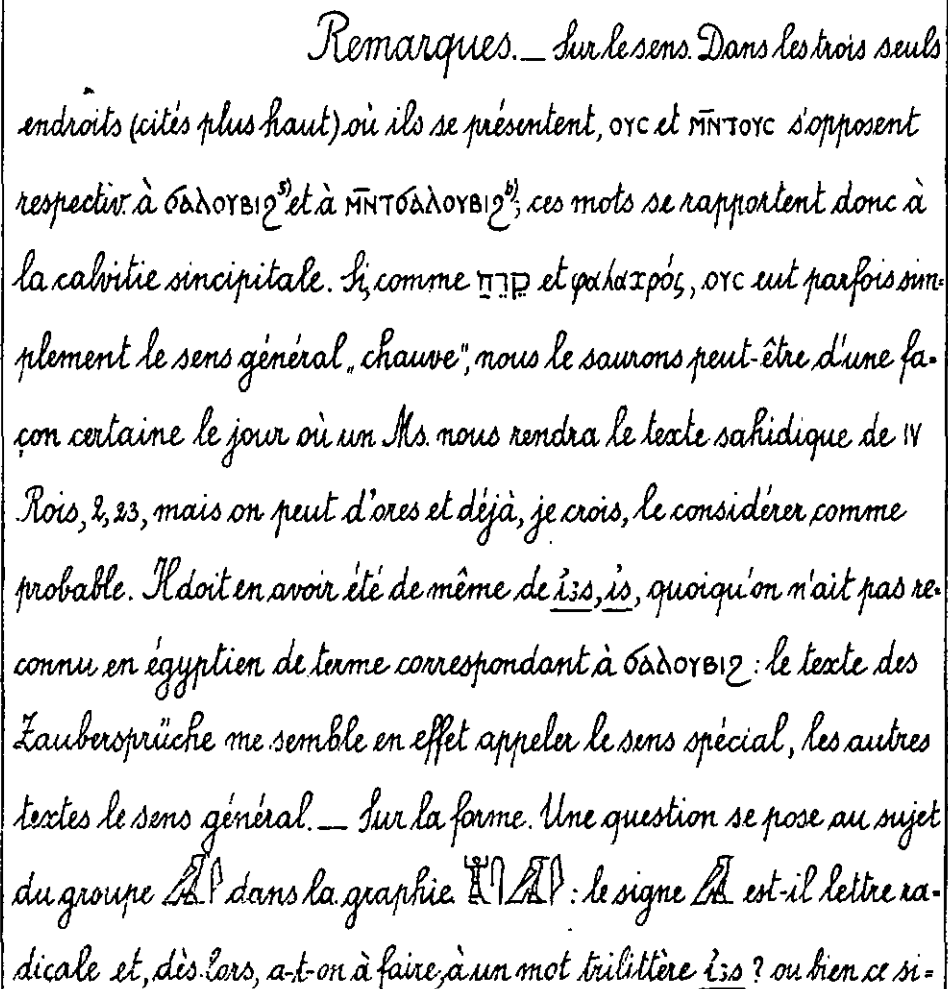 Remarques. — Sur le sens. Dans les trois seuls
endroits (cités plus haut) où ils se présentent, ⲟⲩⲥ et ⲙ̄ⲛ̄ⲧⲟⲩⲥ s'opposent
respectiv. à ϭⲁⲗⲟⲩⲃⲓϩ⁵⁾ et à ⲙ̄ⲛ̄ⲧϭⲁⲗⲟⲩⲃⲓϩ⁶⁾; ces mots se rapportent donc à
la calvitie sincipitale. Si, comme קֵרֵחַ et φαλακρός, ⲟⲩⲥ eut parfois sim=
plement le sens général „chauve", nous le saurons peut-être d'une fa-
çon certaine le jour où un Ms. nous rendra le texte sahidique de IV
Rois, 2, 23, mais on peut d'ores et déjà, je crois, le considérer comme
probable. Il doit en avoir été de même de i҆ꜣs, i҆s, quoiqu'on n'ait pas re-
connu en égyptien de terme correspondant à ϭⲁⲗⲟⲩⲃⲓϩ : le texte des
Zaubersprüche me semble en effet appeler le sens spécial, les autres
textes le sens général. — Sur la forme. Une question se pose au sujet
du groupe dans la graphie : le signe est-il lettre ra-
dicale et, dès lors, a-t-on à faire, à un mot trilittère i҆ꜣs ? ou bien ce si=